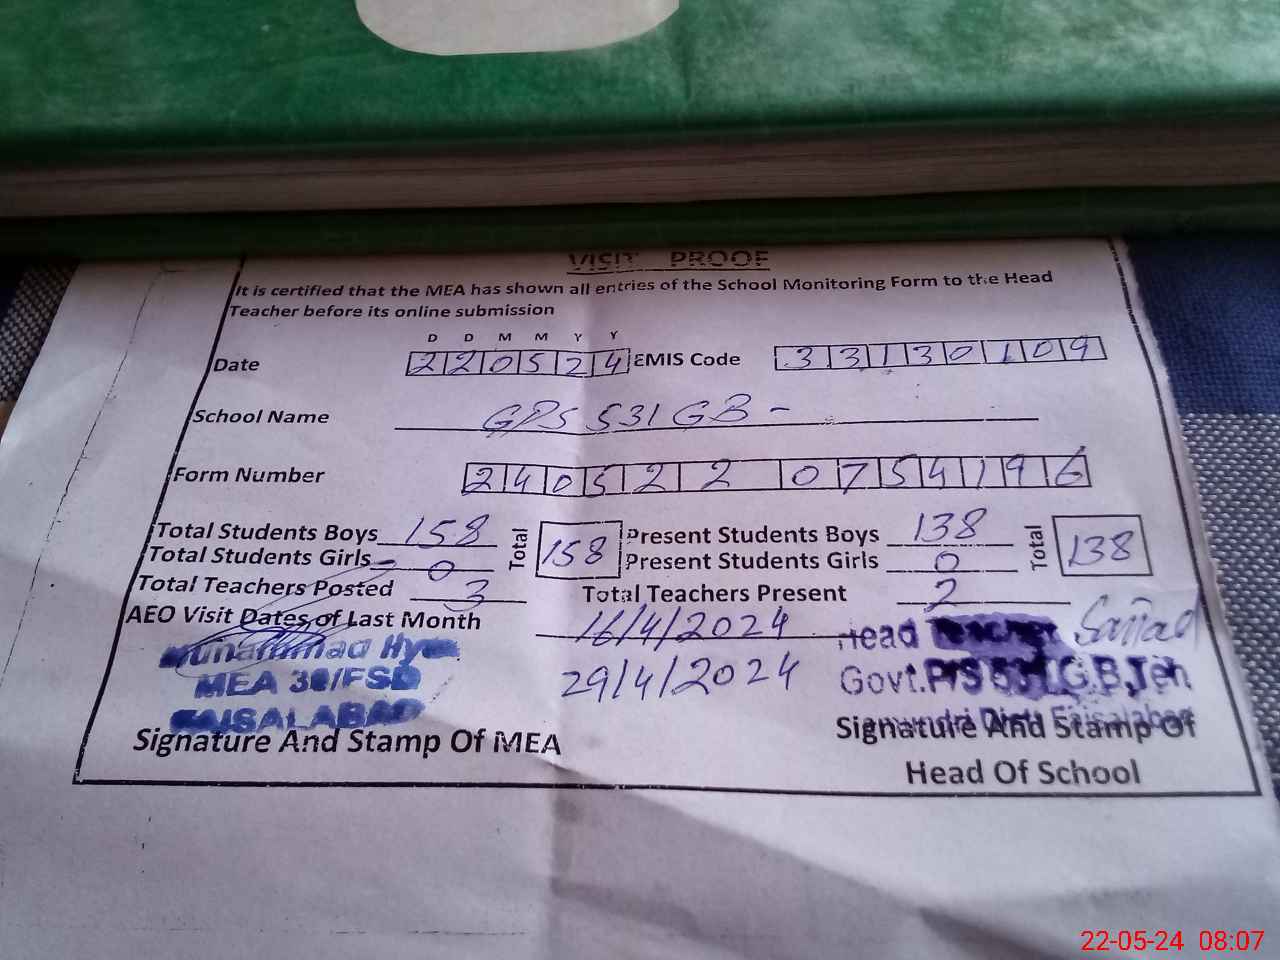 VISIT PROOF
It is certified that the MEA has shown all entries of the School Monitoring Form to the Head
Teacher before its online submission
D D M M Y Y
Date 220524 EMIS Code 33130109
School Name GPS 531 GB -
Form Number 2405220754196
Total Students Boys 158 Total 158 Present Students Boys 138 Total 138
Total Students Girls 0 Present Students Girls 0
Total Teachers Posted 3 Total Teachers Present 2
AEO Visit Dates of Last Month 16/4/2024
29/4/2024
Muhammad
MEA 38/FSD
FAISALABAD
Signature And Stamp Of MEA
Sajjad
Head Teacher
Govt.P/S 531 G.B, Teh
Faisalabad
Signature And Stamp Of
Head Of School
22-05-24 08:07